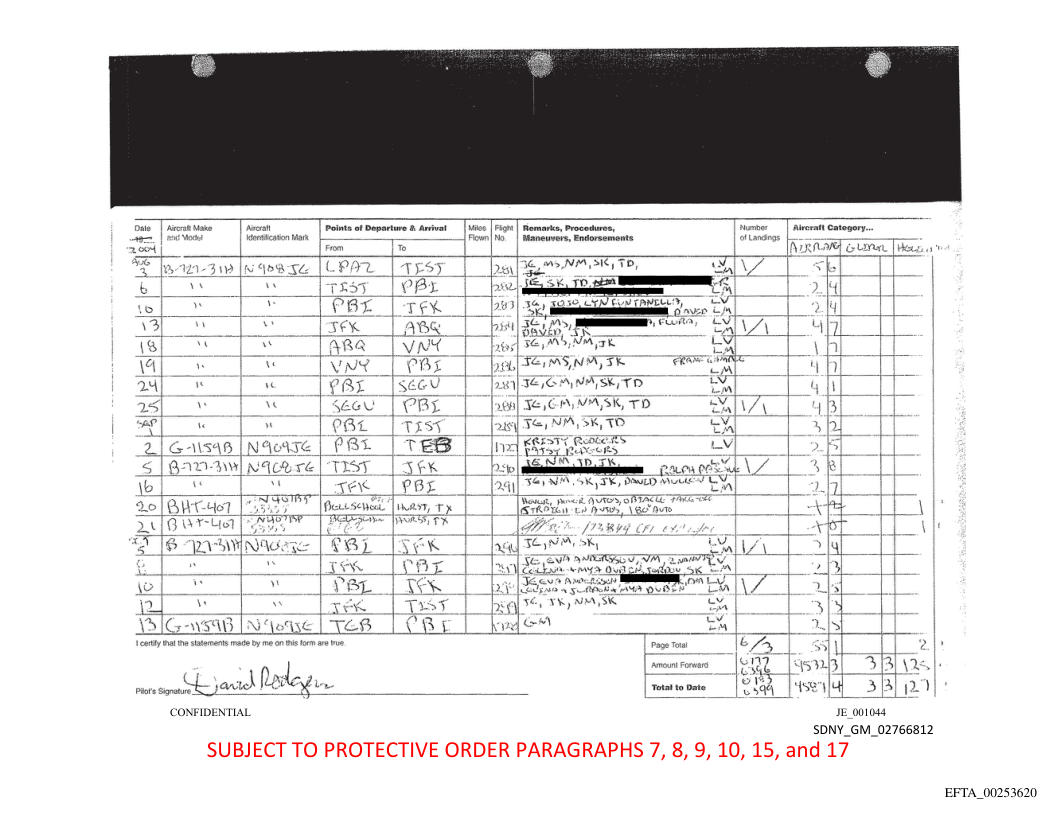 Date Aircraft Make Aircraft Points of Departure & Arrival Miles Flight Remarks, Procedures, Number Aircraft Category...
and Model Identification Mark Flown No. Maneuvers, Endorsements of Landings
2004 From To AIRPLANE GLIDER
AUG
3 B-727-31H N908JE LPAZ TIST 281 JE, MS, NM, SK, TD, LV 1/ 5 6
JE LM
6 " " TIST PBI 282 JE, SK, TD, NM 2 4
10 " " PBI JFK 283 JE, JOJO, LYN FONTANELLA, LV 2 4
SK, DAVID LM
13 " " JFK ABQ 284 JE, MS, FLORA, LV 1/1 4 7
DAVID, JK LM
18 " " ABQ VNY 285 JE, MS, NM, JK LV 1 7
LM
19 " " VNY PBI 286 JE, MS, NM, JK LV 4 7
LM
24 " " PBI SEGU 287 JE, GM, NM, SK, TD LV 4 1
LM
25 " " SEGU PBI 288 JE, GM, NM, SK, TD LV 1/1 4 3
LM
SEP
1 " " PBI TIST 289 JE, NM, SK, TD LV 3 2
LM
2 G-1159B N909JE PBI TEB 1727 KRISTY RODGERS LV 2 5
PATSY RODGERS
5 B-727-31H N908JE TIST JFK 290 JE, NM, TD, JK, LV 1/ 3 8
RALPH LM
16 " " JFK PBI 291 JE, NM, SK, JK, DAVID MULLEN LV 2 7
LM
20 BHT-407 N407BP BELLSCHOOL HURST, TX HOVER, HOVER AUTOS, OBSTACLE TAKE-OFF 1
STRAIGHT-IN AUTOS, 180° AUTO
21 BHT-407 N407BP HURST, TX 1
5 B-727-31H N908JE PBI JFK 296 JE, NM, SK, LV 1/1 2 4
LM
8 " " JFK PBI 297 JE, EVA ANDERSSON, NM, 2 NANNYS LV 2 3
CELINA + MYA DUBIN, JORDAN, SK LM
10 " " PBI JFK 298 JE EVA ANDERSSON SK, DM LV 1/ 2 5
CELINA + JORDAN + MYA DUBIN LM
12 " " JFK TIST 299 JE, JK, NM, SK LV 3 3
LM
13 G-1159B N909JE TEB PBI 1728 GM LV 2 5
LM
I certify that the statements made by me on this form are true. Page Total 6/3 55 1 2
Amount Forward 6177 9532 3 3 3 125
6396
Pilot's Signature David Rodgers Total to Date 6183 9587 4 3 3 127
6399
CONFIDENTIAL JE_001044
SDNY_GM_02766812
SUBJECT TO PROTECTIVE ORDER PARAGRAPHS 7, 8, 9, 10, 15, and 17
EFTA_00253620